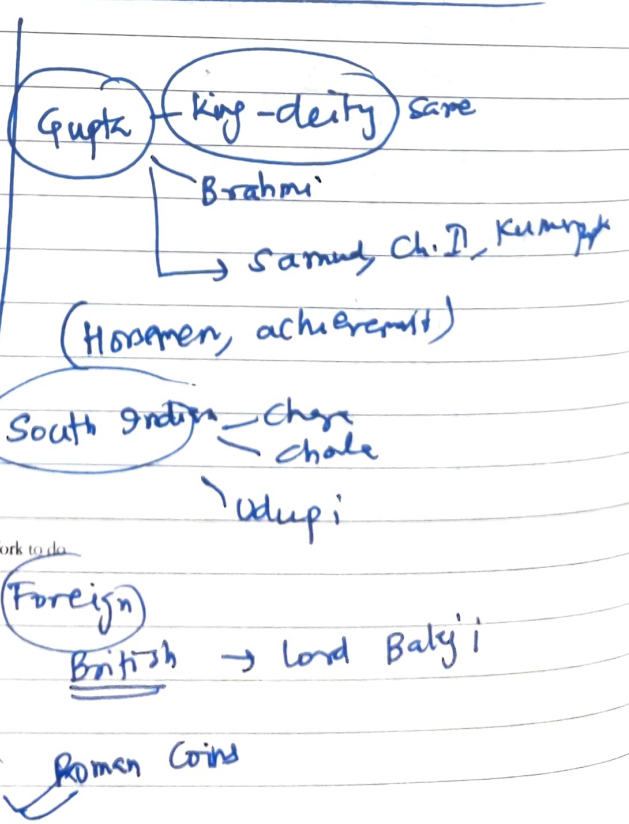 Gupta - King-deity same
Brahmi
Samud, Ch. II, Kumrgpt
(Horsemen, achievemnt)
South Indian - Chera
Chola
Udupi
ork to do
Foreign
British → Lord Balaji
Roman Coins